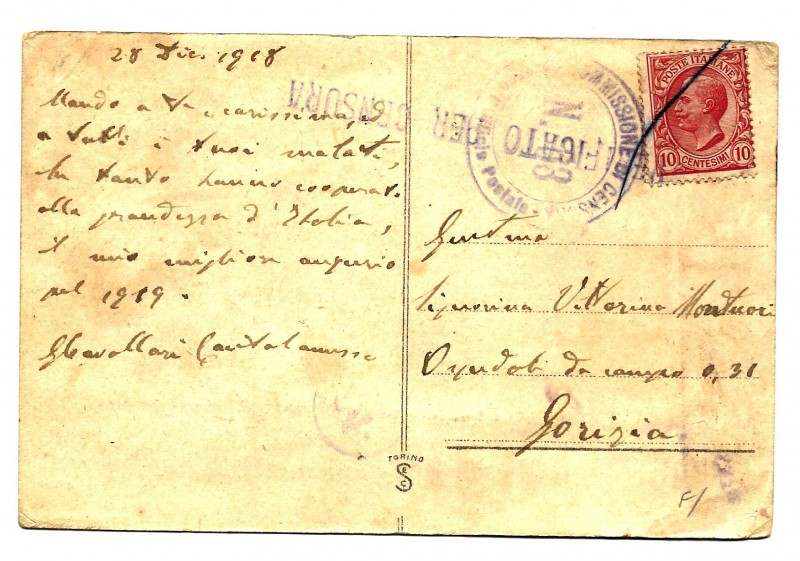 28 Dic. 1918
Mando a te carissima, e
a tutti i tuoi malati,
che tanto hanno cooperato
alla grandezza d'Italia,
il mio miglior augurio
pel 1919.
VERIFICATO PER CENSURA
COMMISSIONE DI CENS
Posta
N. 13
POSTE ITALIANE
10 CENTESIMI 10
Gentma
Signorina Vittorina Montuori
Ospedale da campo 0,31
Gorizia
TORINO